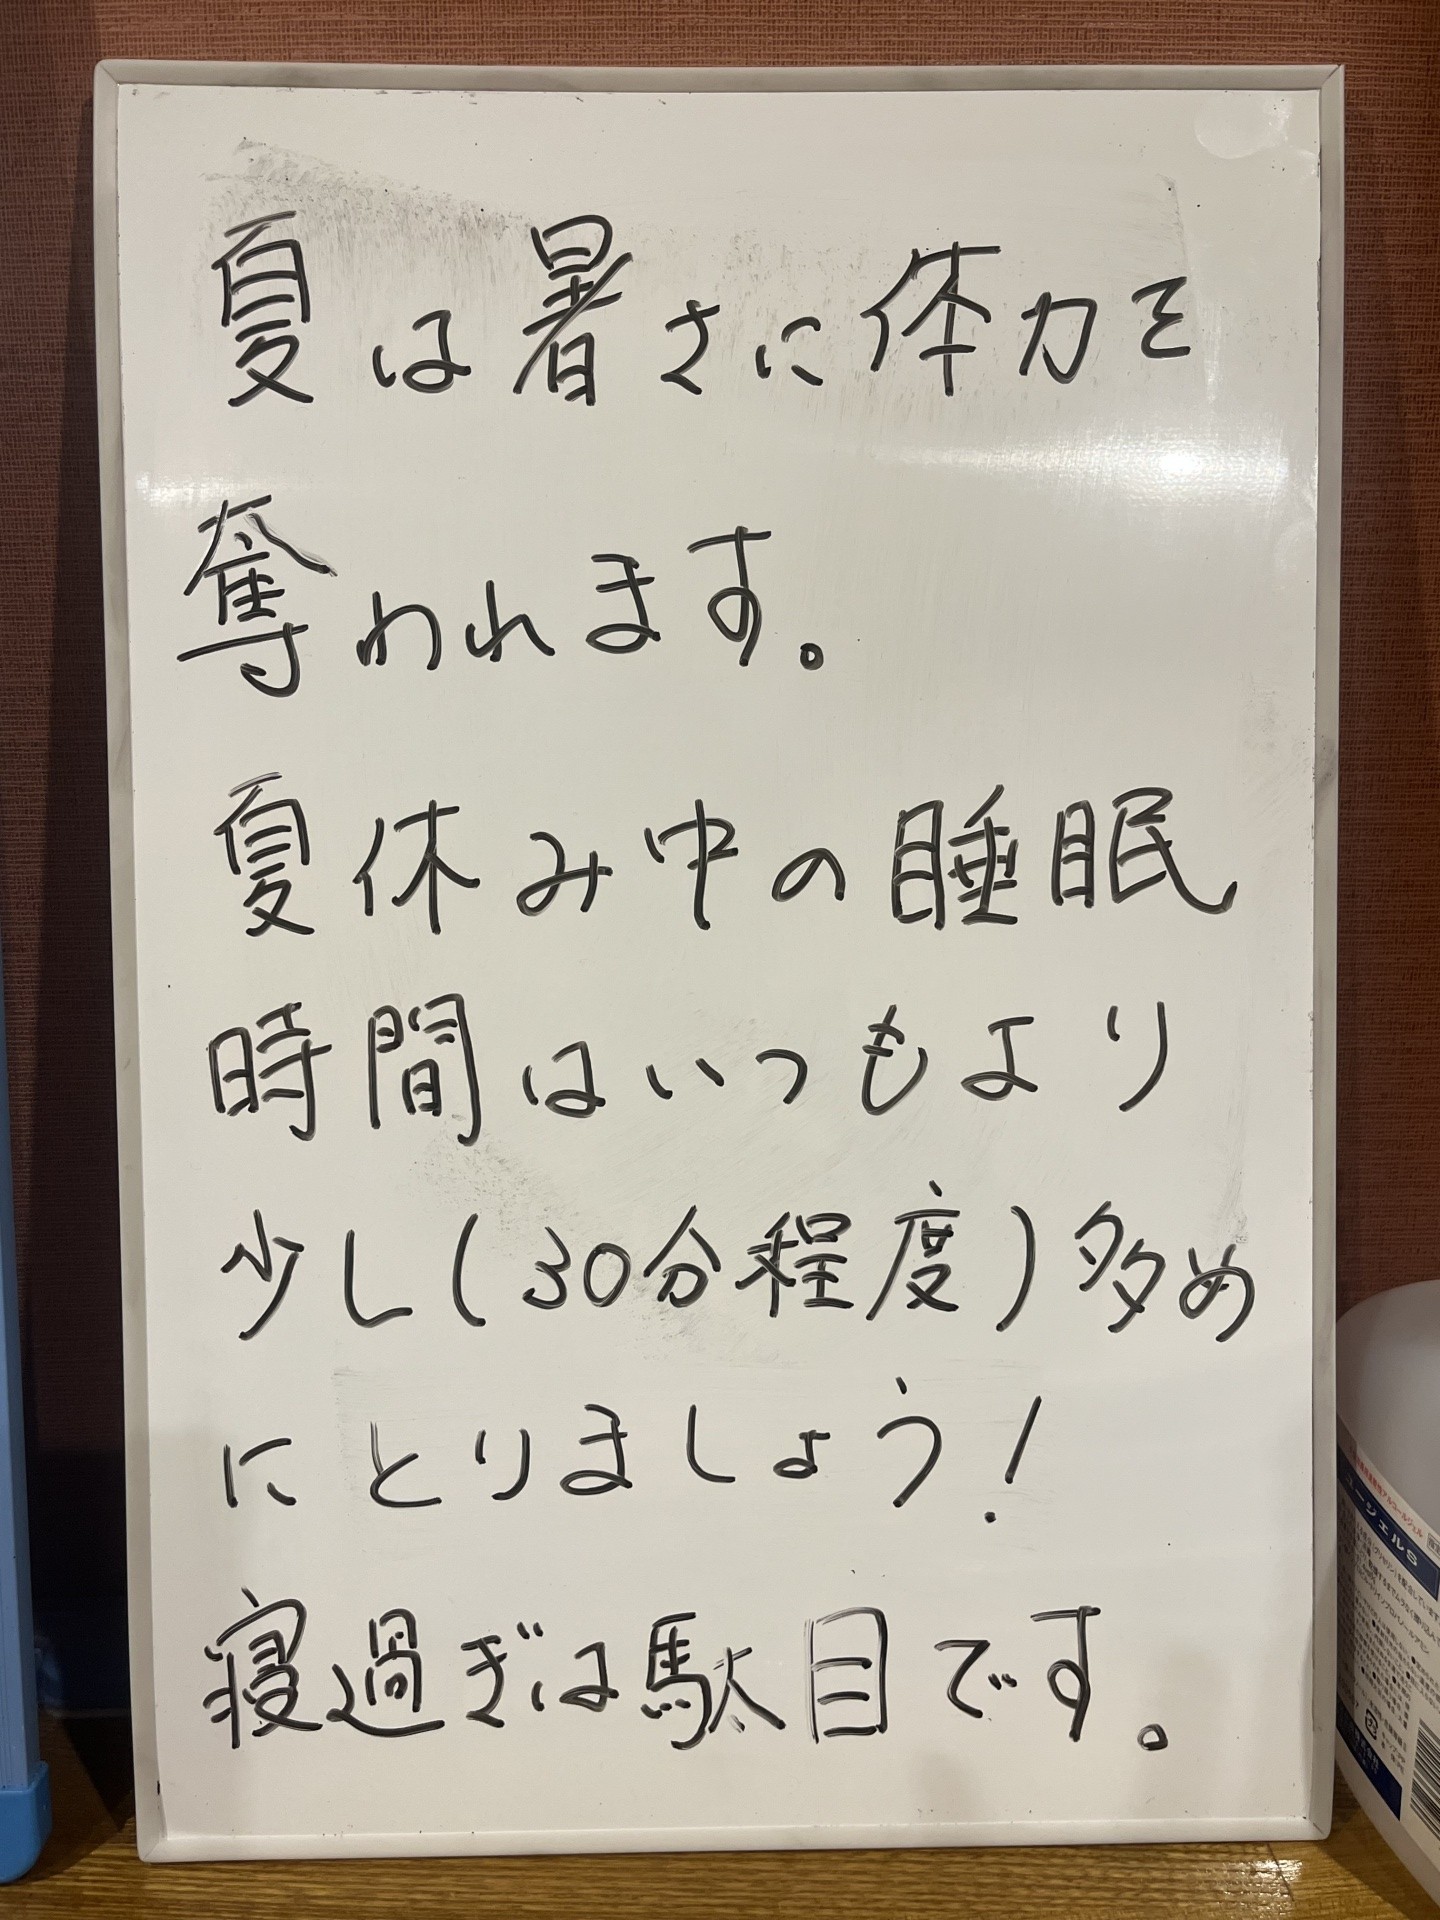 夏は暑さに体力を
奪われます。
夏休み中の睡眠
時間はいつもより
少し(30分程度)多め
にとりましょう!
寝過ぎは駄目です。
ユージェルS